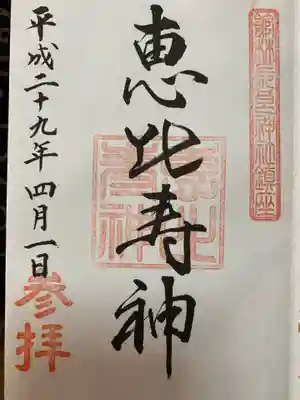 神社鎮座
恵比寿神
恵比
寿神
平成二十九年四月一日
参拝